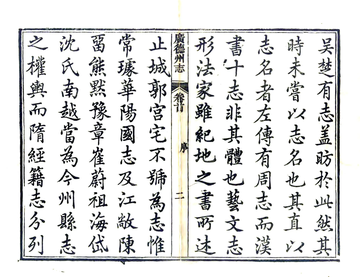 吳楚有志蓋昉於此然其
時未嘗以志名也其直以
志名者左傳有周志而漢
書十志非其體也藝文志
形法家雖紀地之書所述
廣德州志
卷首
序
二
止城郭宮宅不號為志惟
常璩華陽國志及江敞陳
畱熊默豫章崔蔚祖海岱
沈氏南越當為今州縣志
之權輿而隋經籍志分列